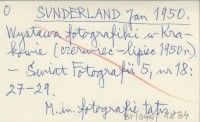 O
SUNDERLAND Jan 1950.
Wystawa fotografiki w Kra-
kowie (czerwiec-lipiec 1950r.)
- Świat Fotografii 5, nr 18:
27-29.
M.in. fotografie tatr.